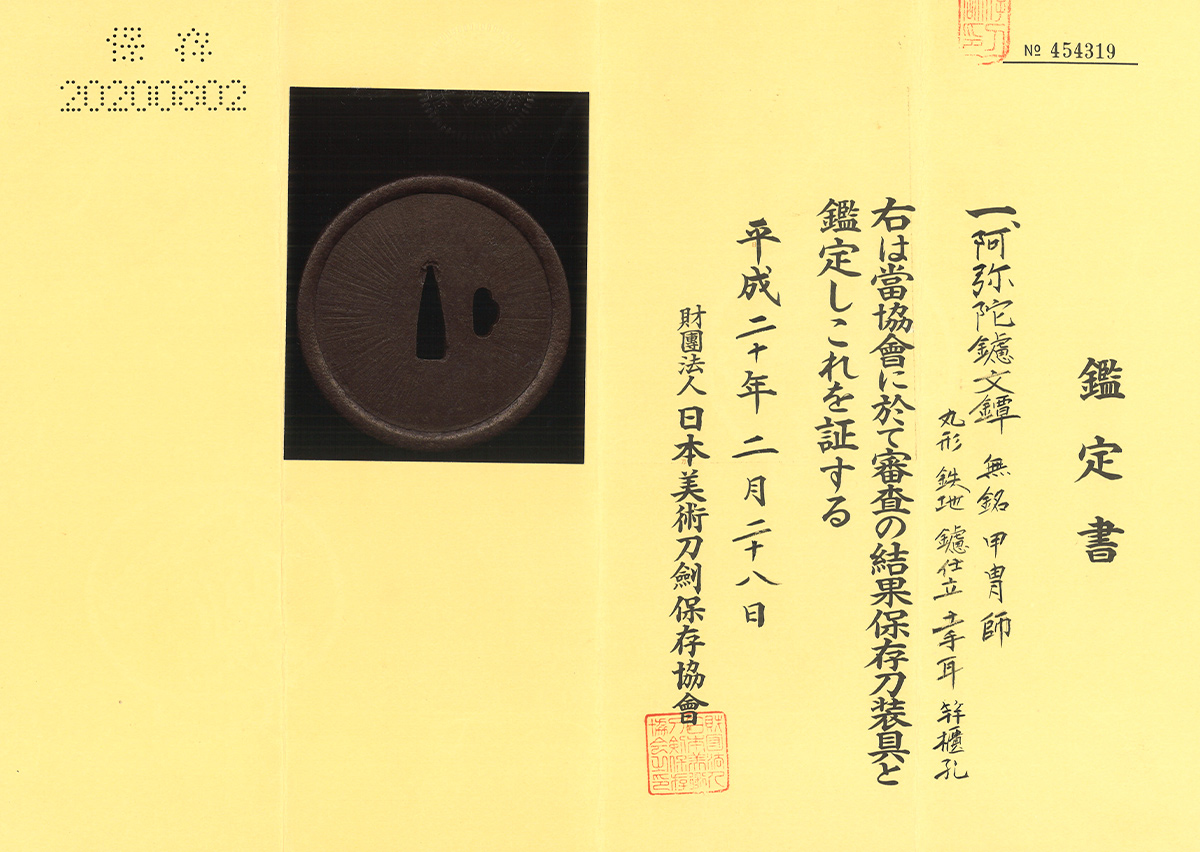 鑑定書
一、阿弥陀鑢文鐔 無銘 甲冑師
丸形 鉄地 鑢仕立 土手耳 笄櫃孔
右は當協會に於て審査の結果保存刀装具と
鑑定しこれを証する
平成二十年二月二十八日
財團法人 日本美術刀劍保存協會
財団法人日本美術刀剣保存協会之印
№ 454319
保存
20200802